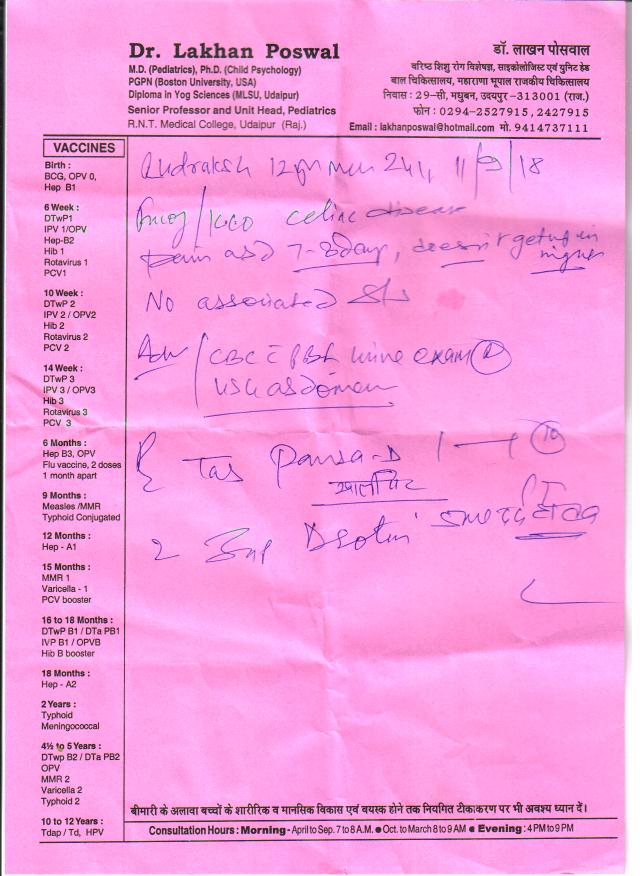 Dr. Lakhan Poswal
M.D. (Pediatrics), Ph.D. (Child Psychology)
PGPN (Boston University, USA)
Diploma in Yog Sciences (MLSU, Udaipur)
Senior Professor and Unit Head, Pediatrics
R.N.T. Medical College, Udaipur (Raj.)
डॉ. लाखन पोसवाल
वरिष्ठ शिशु रोग विशेषज्ञ, साइकोलोजिस्ट एवं यूनिट हेड
बाल चिकित्सालय, महाराणा भूपाल राजकीय चिकित्सालय
निवास : 29-सी, मधुबन, उदयपुर-313001 (राज.)
फोन : 0294-2527915, 2427915
Email : lakhanposwal@hotmail.com मो. 9414737111
VACCINES
Birth :
BCG, OPV 0,
Hep B1
6 Week :
DTwP1
IPV 1/OPV
Hep-B2
Hib 1
Rotavirus 1
PCV1
10 Week :
DTwP 2
IPV 2 / OPV2
Hib 2
Rotavirus 2
PCV 2
14 Week :
DTwP 3
IPV 3 / OPV3
Hib 3
Rotavirus 3
PCV 3
6 Months :
Hep B3, OPV
Flu vaccine, 2 doses
1 month apart
9 Months :
Measles /MMR
Typhoid Conjugated
12 Months :
Hep - A1
15 Months :
MMR 1
Varicella - 1
PCV booster
16 to 18 Months :
DTwP B1 / DTa PB1
IVP B1 / OPVB
Hib B booster
18 Months :
Hep - A2
2 Years :
Typhoid
Meningococcal
4½ to 5 Years :
DTwp B2 / DTa PB2
OPV
MMR 2
Varicella 2
Typhoid 2
10 to 12 Years :
Tdap / Td, HPV
Rudraksh 11/9/18
celiac disease
7-8 day, doesn't
No associated
Adv CBC urine exam
USG abdomen
Tab Pansa-D 1
खाली पेट
2
बीमारी के अलावा बच्चों के शारीरिक व मानसिक विकास एवं वयस्क होने तक नियमित टीकाकरण पर भी अवश्य ध्यान दें।
Consultation Hours : Morning - April to Sep. 7 to 8 A.M. ● Oct. to March 8 to 9 AM ● Evening : 4 PM to 9 PM